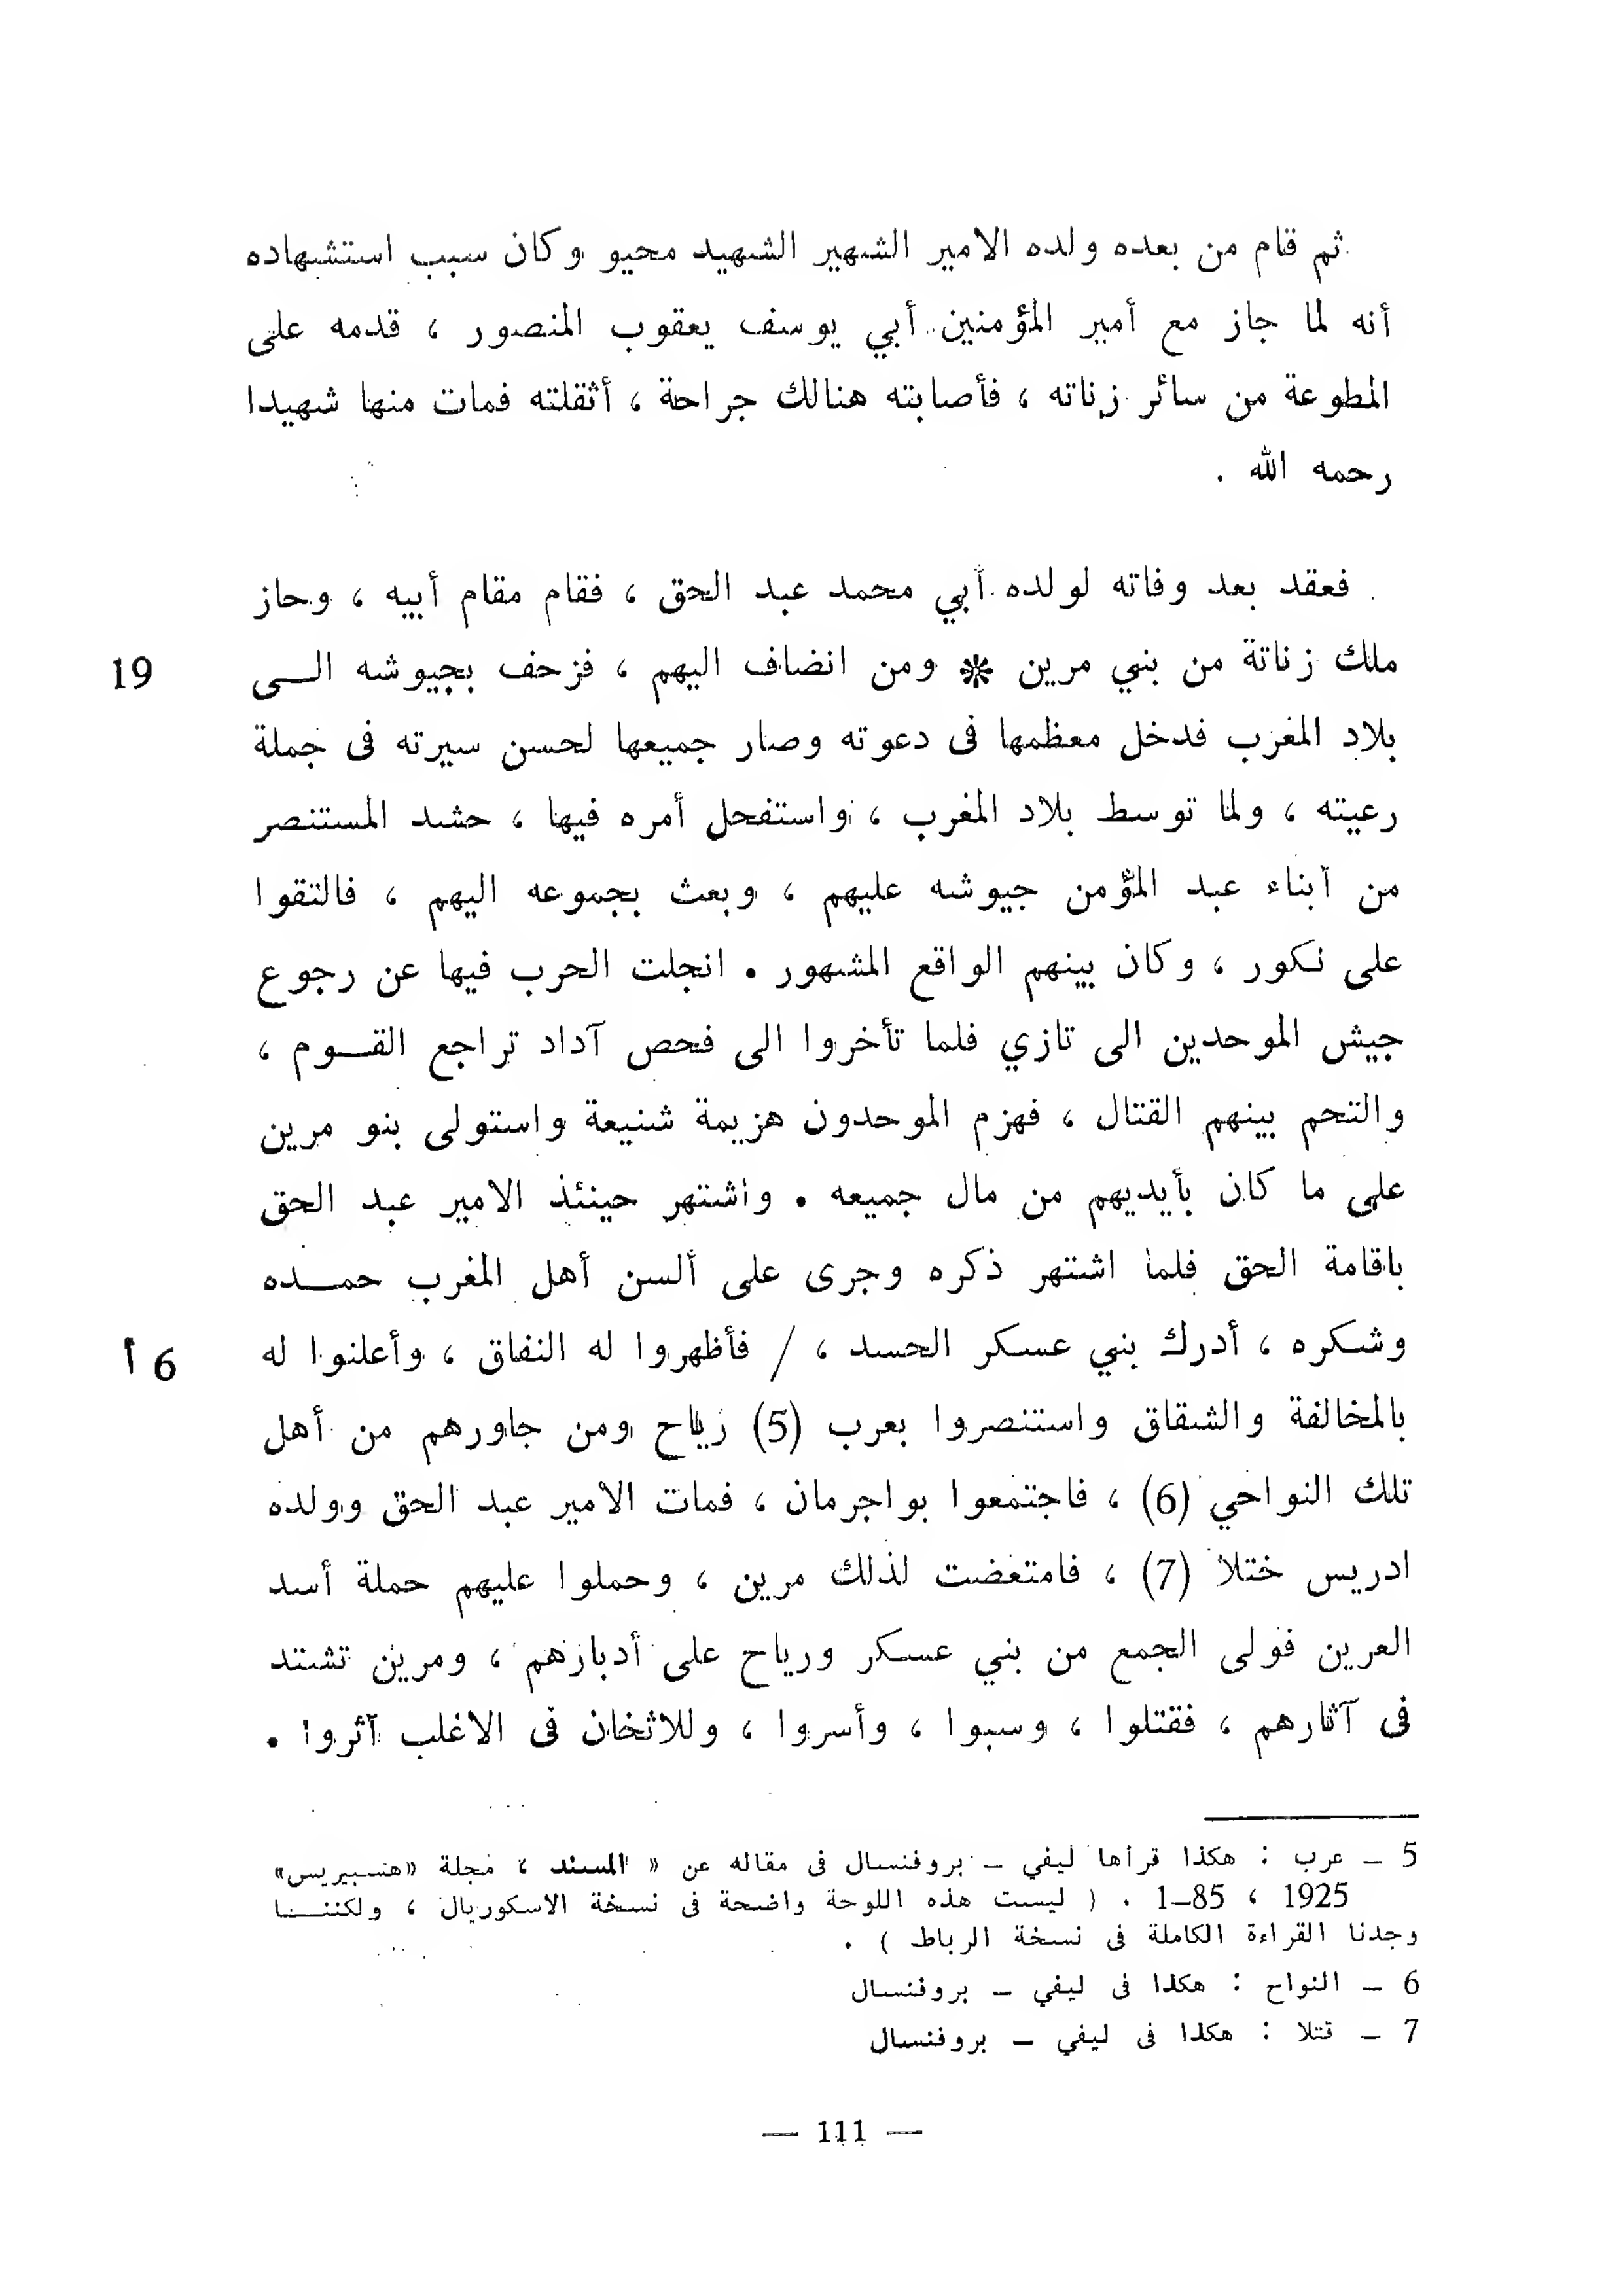 ثم قام من بعده ولده الامير الشهير الشهيد محيو وكان سبب استشهاده
أنه لما جاز مع أمير المؤمنين أبي يوسف يعقوب المنصور ، قدمه على
المطوعة من سائر زناته ، فأصابته هنالك جراحة ، أثقلته فمات منها شهيدا
رحمه الله .
فعقد بعد وفاته لولده أبي محمد عبد الحق ، فقام مقام أبيه ، وحاز
ملك زناتة من بني مرين * ومن انضاف اليهم ، فزحف بجيوشه الى
19
بلاد المغرب فدخل معظمها فى دعوته وصار جميعها لحسن سيرته فى جملة
رعيته ، ولما توسط بلاد المغرب ، واستفحل أمره فيها ، حشد المستنصر
من أبناء عبد المؤمن جيوشه عليهم ، وبعث بجموعه اليهم ، فالتقوا
على نكور ، وكان بينهم الواقع المشهور . انجلت الحرب فيها عن رجوع
جيش الموحدين الى تازي فلما تأخروا الى فحص آداد تراجع القوم ،
والتحم بينهم القتال ، فهزم الموحدون هزيمة شنيعة واستولى بنو مرين
على ما كان بأيديهم من مال جميعه . واشتهر حينئذ الامير عبد الحق
باقامة الحق فلما اشتهر ذكره وجرى على ألسن أهل المغرب حمده
وشكره ، أدرك بني عسكر الحسد ، / فأظهروا له النفاق ، وأعلنوا له
6 أ
بالمخالفة والشقاق واستنصروا بعرب (5) رياح ومن جاورهم من أهل
تلك النواحي (6) ، فاجتمعوا بواجرمان ، فمات الامير عبد الحق وولده
ادريس ختلا (7) ، فامتعضت لذلك مرين ، وحملوا عليهم حملة أسد
العرين فولى الجمع من بني عسكر ورياح على أدبارهم ، ومرين تشتد
فى آثارهم ، فقتلوا ، وسبوا ، وأسروا ، وللاثخان فى الاغلب آثروا .
5 – عرب : هكذا قرأها ليفي – بروفنسال فى مقاله عن « المسند » مجلة «هسبيريس»
1925 ، 85–1 . ( ليست هذه اللوحة واضحة فى نسخة الاسكوريال ، ولكننا
وجدنا القراءة الكاملة فى نسخة الرباط ) .
6 – النواح : هكذا فى ليفي – بروفنسال
7 – قتلا : هكذا فى ليفي – بروفنسال
— 111 —